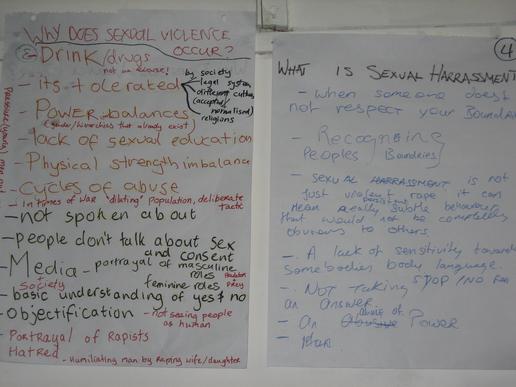 WHY DOES SEXUAL VIOLENCE
OCCUR?
- DRINK/drugs
not be excuse!
- its tolerated
by society
legal system
different cultures
(accepted/
normalised)
religions
- POWER balances
(gender/hierarchies that already exist)
- lack of sexual education
- Physical strength imbalance
- Cycles of abuse
- in times of war "diluting" population, deliberate
tactic
- not spoken about
- people don't talk about sex
and consent
- Media - portrayal of masculine
roles
+
society
feminine roles
Predators
prey
- basic understanding of yes & no
- objectification - not seeing people
as human
- Portrayal of Rapists
Hatred
- Humiliating man by Raping wife/daughter
4
WHAT IS SEXUAL HARRASSMENT
- when someone doesn't
not respect your Boundar
- Recognising
Peoples Boundries
- SEXUAL HARRASSMENT is not
just violent rape it can
Mean really subtle behaviour
persistent
that would not be completely
obvious to others.
- A lack of sensitivity towards
Somebodies body language.
- Not taking STOP/NO for
an answer.
- An abuse of Power
-